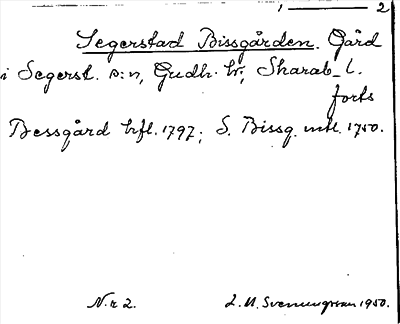 1 ——— 2
Segerstad Bissgården. Gård
i Segerst. s:n, Gudh. hr, Skarab. l.
forts
Bessgård hfl. 1797; S. Bissg. mtl. 1750.
N:r 2. L. M. Svenungsson 1950.